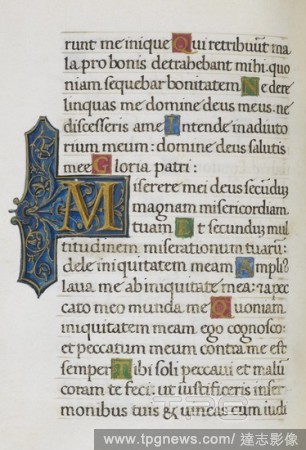 runt me inique Qui retribuūt ma
la pro bonis detrahebant mihi. quo
niam sequebar bonitatem Ne dere
linquas me domine deus meus. ne
discesseris a me Intende in adiuto
rium meum: domine deus salutis
mee Gloria patri:
Miserere mei deus secūdū
magnam misericordiam
tuam Et secundum mul
titudinem miserationum tuarū:
dele iniquitatem meam Ampli9
laua me ab iniquitate mea: 7 a pec
cato meo munda me Quoniam
iniquitatem meam ego cognosco:
et peccatum meum contra me est
semper Tibi soli peccaui et malū
coram te feci: ut iustificeris in ser
monibus tuis & uincas cum iudi
www.tpgnews.com / 達志影像